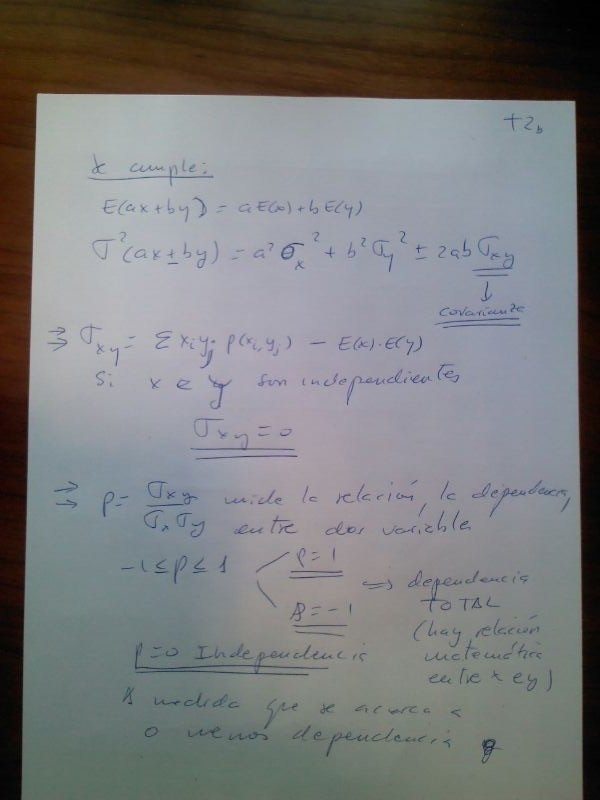 T2b
Se cumple:
E(ax+by) = aE(x)+bE(y)
σ²(ax±by) = a²σx² + b²σy² ± 2abσxy
↓
covarianza
⇒ σxy = Σ xiyj p(xi,yj) − E(x)·E(y)
Si x e y son independientes
σxy = 0
⇒ ρ = σxy / σxσy mide la relación, la dependencia,
entre dos variables
-1 ≤ ρ ≤ 1
ρ = 1
ρ = -1
⇒ dependencia
TOTAL
(hay relación
matemática
entre x e y)
ρ=0 Independencia
A medida que se acerca a
0 menos dependencia